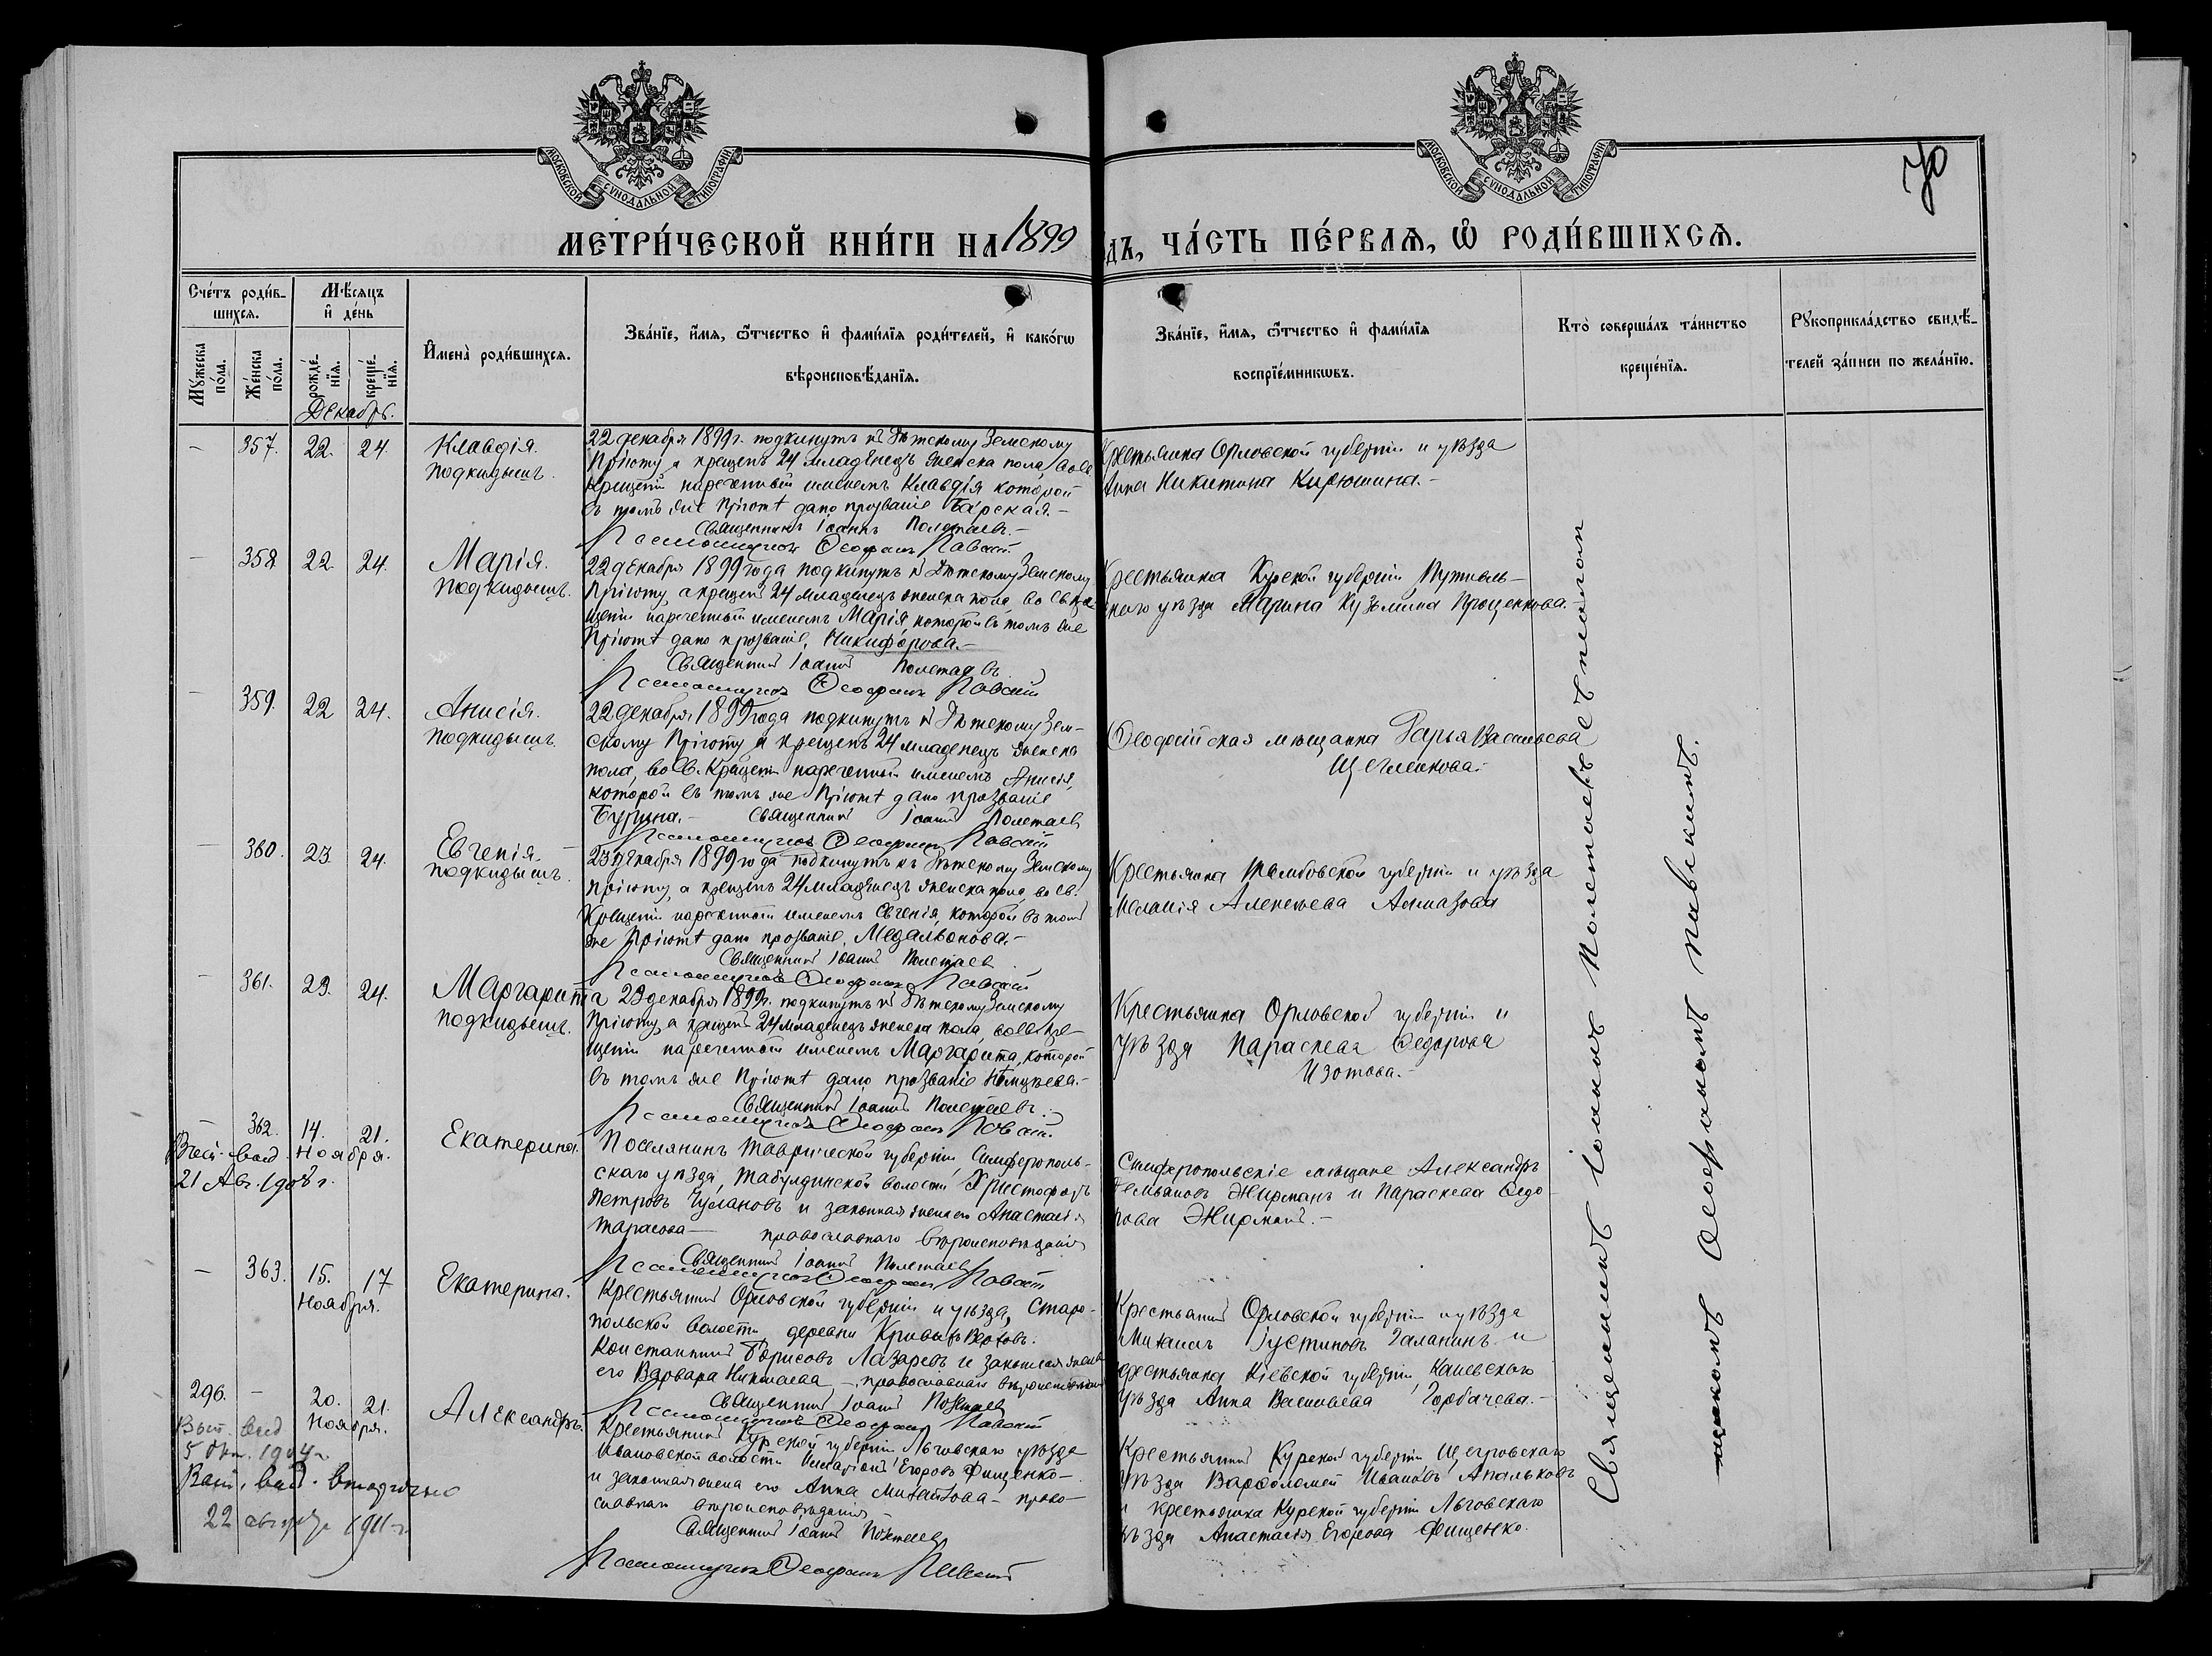 МОСКОВСКОЙ СѴНОДАЛЬНОЙ ТИПОГРАФІИ
МОСКОВСКОЙ СѴНОДАЛЬНОЙ ТИПОГРАФІИ
70
МЕТРИ́ЧЕСКОЙ КНИ́ГИ НА 1899
ДЪ, ЧА́СТЬ ПЕ́РВАѦ, Ѽ РОДИ́ВШИХСѦ.
Сче́тъ роди́в-
шихсѧ.
Мꙋ́жеска по́ла.
Же́нска по́ла.
Мѣ́сѧцъ и҆ де́нь
рожде́-нїѧ.
креще́-нїѧ.
И҆мена̀ роди́вшихсѧ.
Зва́нїе, и҆́мѧ, ѻ҆́тчество и҆ фами́лїѧ роди́телей, и҆ како́гѡ
вѣроисповѣ́данїѧ.
Зва́нїе, и҆́мѧ, ѻ҆́тчество и҆ фами́лїѧ
воспрїе́мникѡвъ.
Кто̀ соверша́лъ та́инство
креще́нїѧ.
Рꙋкоприкла́дство свидѣ́-
телей за́писи по жела́нїю.
Декабрь.
– 357. 22. 24. Клавдія.
Подкидышъ.
22 декабря 1899 г. подкинутъ къ Дѣтскому Земскому
Пріюту, а крещенъ 24 младенецъ женска пола, во св.
Крещеніи нареченный именемъ Клавдія которой
въ томъ же Пріютѣ дано прозваніе Барская.–
Священникъ Іоаннъ Полетаевъ.–
Псаломщикъ Ѳеофанъ Павскій
Крестьянка Орловской губерніи и уѣзда
Анна Никитина Кирюшина.–
– 358 22. 24. Марія.
Подкидышъ.
22 декабря 1899 года подкинутъ къ Дѣтскому Земскому
Пріюту, а крещенъ 24 младенецъ женска пола, во св. Кре-
щеніи нареченный именемъ Марія которой въ томъ же
Пріютѣ дано прозваніе, Никифорова.–
Священникъ Іоаннъ Полетаевъ
Псаломщикъ Ѳеофанъ Павскій
Крестьянка Курской губерніи Путивль-
скаго уѣзда Марина Кузьмина Проценкова.–
– 359. 22 24. Анисія.
Подкидышъ.
22 декабря 1899 года подкинутъ къ Дѣтскому Зем-
скому Пріюту а крещенъ 24 младенецъ женска
пола, во св. Крещеніи нареченный именемъ Анисія,
которой въ томъ же Пріютѣ дано прозваніе
Бурина.– Священникъ Іоаннъ Полетаевъ
Псаломщикъ Ѳеофанъ Павскій
Ѳеодосійская мѣщанка Дарья Васильева
Щегленкова.–
– 360. 23. 24. Евгенія.–
Подкидышъ.
23 декабря 1899 года подкинутъ къ Дѣтскому Земскому
Пріюту, а крещенъ 24 младенецъ женска пола, во св.
Крещеніи нареченный именемъ Евгенія, которой въ томъ
же Пріютѣ дано прозваніе, Медальонова.–
Священникъ Іоаннъ Полетаевъ
Псаломщикъ Ѳеофанъ Павскій
Крестьянка Тамбовской губерніи и уѣзда
Меланія Алексѣева Алмазова
– 361. 23. 24. Маргарита
Подкидышъ.
23 декабря 1899 г. подкинутъ къ Дѣтскому Земскому
Пріюту, а крещенъ 24 младенецъ женска пола, во св. Кре-
щеніи нареченный именемъ Маргарита, которой
въ томъ же Пріютѣ дано прозваніе
Священникъ Іоаннъ Полетаевъ.
Псаломщикъ Ѳеофанъ Павскій
Крестьянка Орловской губерніи и
уѣзда Параскева Ѳедорова
Изотова.–
– 362. 14. 21. Екатерина.
Ноября.
21 Авг. 1908 г.
Поселянинъ Таврической губерніи, Симферополь-
скаго уѣзда, Табулдинской волости Христофоръ
Петровъ Чулановъ и законная жена его Анастасія
Тарасова– православнаго вѣроисповѣданія
Священникъ Іоаннъ Полетаевъ
Псаломщикъ Ѳеофанъ Павскій
Симферопольскіе мѣщане Александръ
Демьяновъ Жирманъ и Параскева Ѳедо-
рова Жирманъ.–
– 363. 15. 17 Екатерина.
Ноября.
Крестьянинъ Орловской губерніи и уѣзда, Старо-
польской волости, деревни Кривыхъ Верховъ.
Константинъ Борисовъ Лазаревъ и законная жена
его Варвара Николаева – православнаго вѣроисповѣданія
Священникъ Іоаннъ Полетаевъ
Псаломщикъ Ѳеофанъ Павскій
Крестьянинъ Орловской губерніи и уѣзда
Михаилъ Іустиновъ Галанинъ и
крестьянка Кіевской губерніи, Каневскаго
уѣзда Анна Васильева Горбачева.–
296. – 20. 21. Александръ.
Ноября.
Вып. выд
5 Окт. 1904 г.
Вып. выд. вторично
22 августа 1911 г.
Крестьянинъ Курской губерніи Льговскаго уѣзда
Ивановской волости Иларіонъ Егоровъ Фищенко–
и законная жена его Анна Михайлова – право-
славнаго вѣроисповѣданія
Священникъ Іоаннъ Полетаевъ
Псаломщикъ Ѳеофанъ Павскій
Крестьянинъ Курской губерніи Щигровскаго
уѣзда Варѳоломей Ивановъ Апальковъ
и крестьянка Курской губерніи Льговскаго
уѣзда Анастасія Егорова Фищенко.
Священникъ Іоаннъ Полетаевъ съ псалом
щикомъ Ѳеофаномъ Павскимъ.